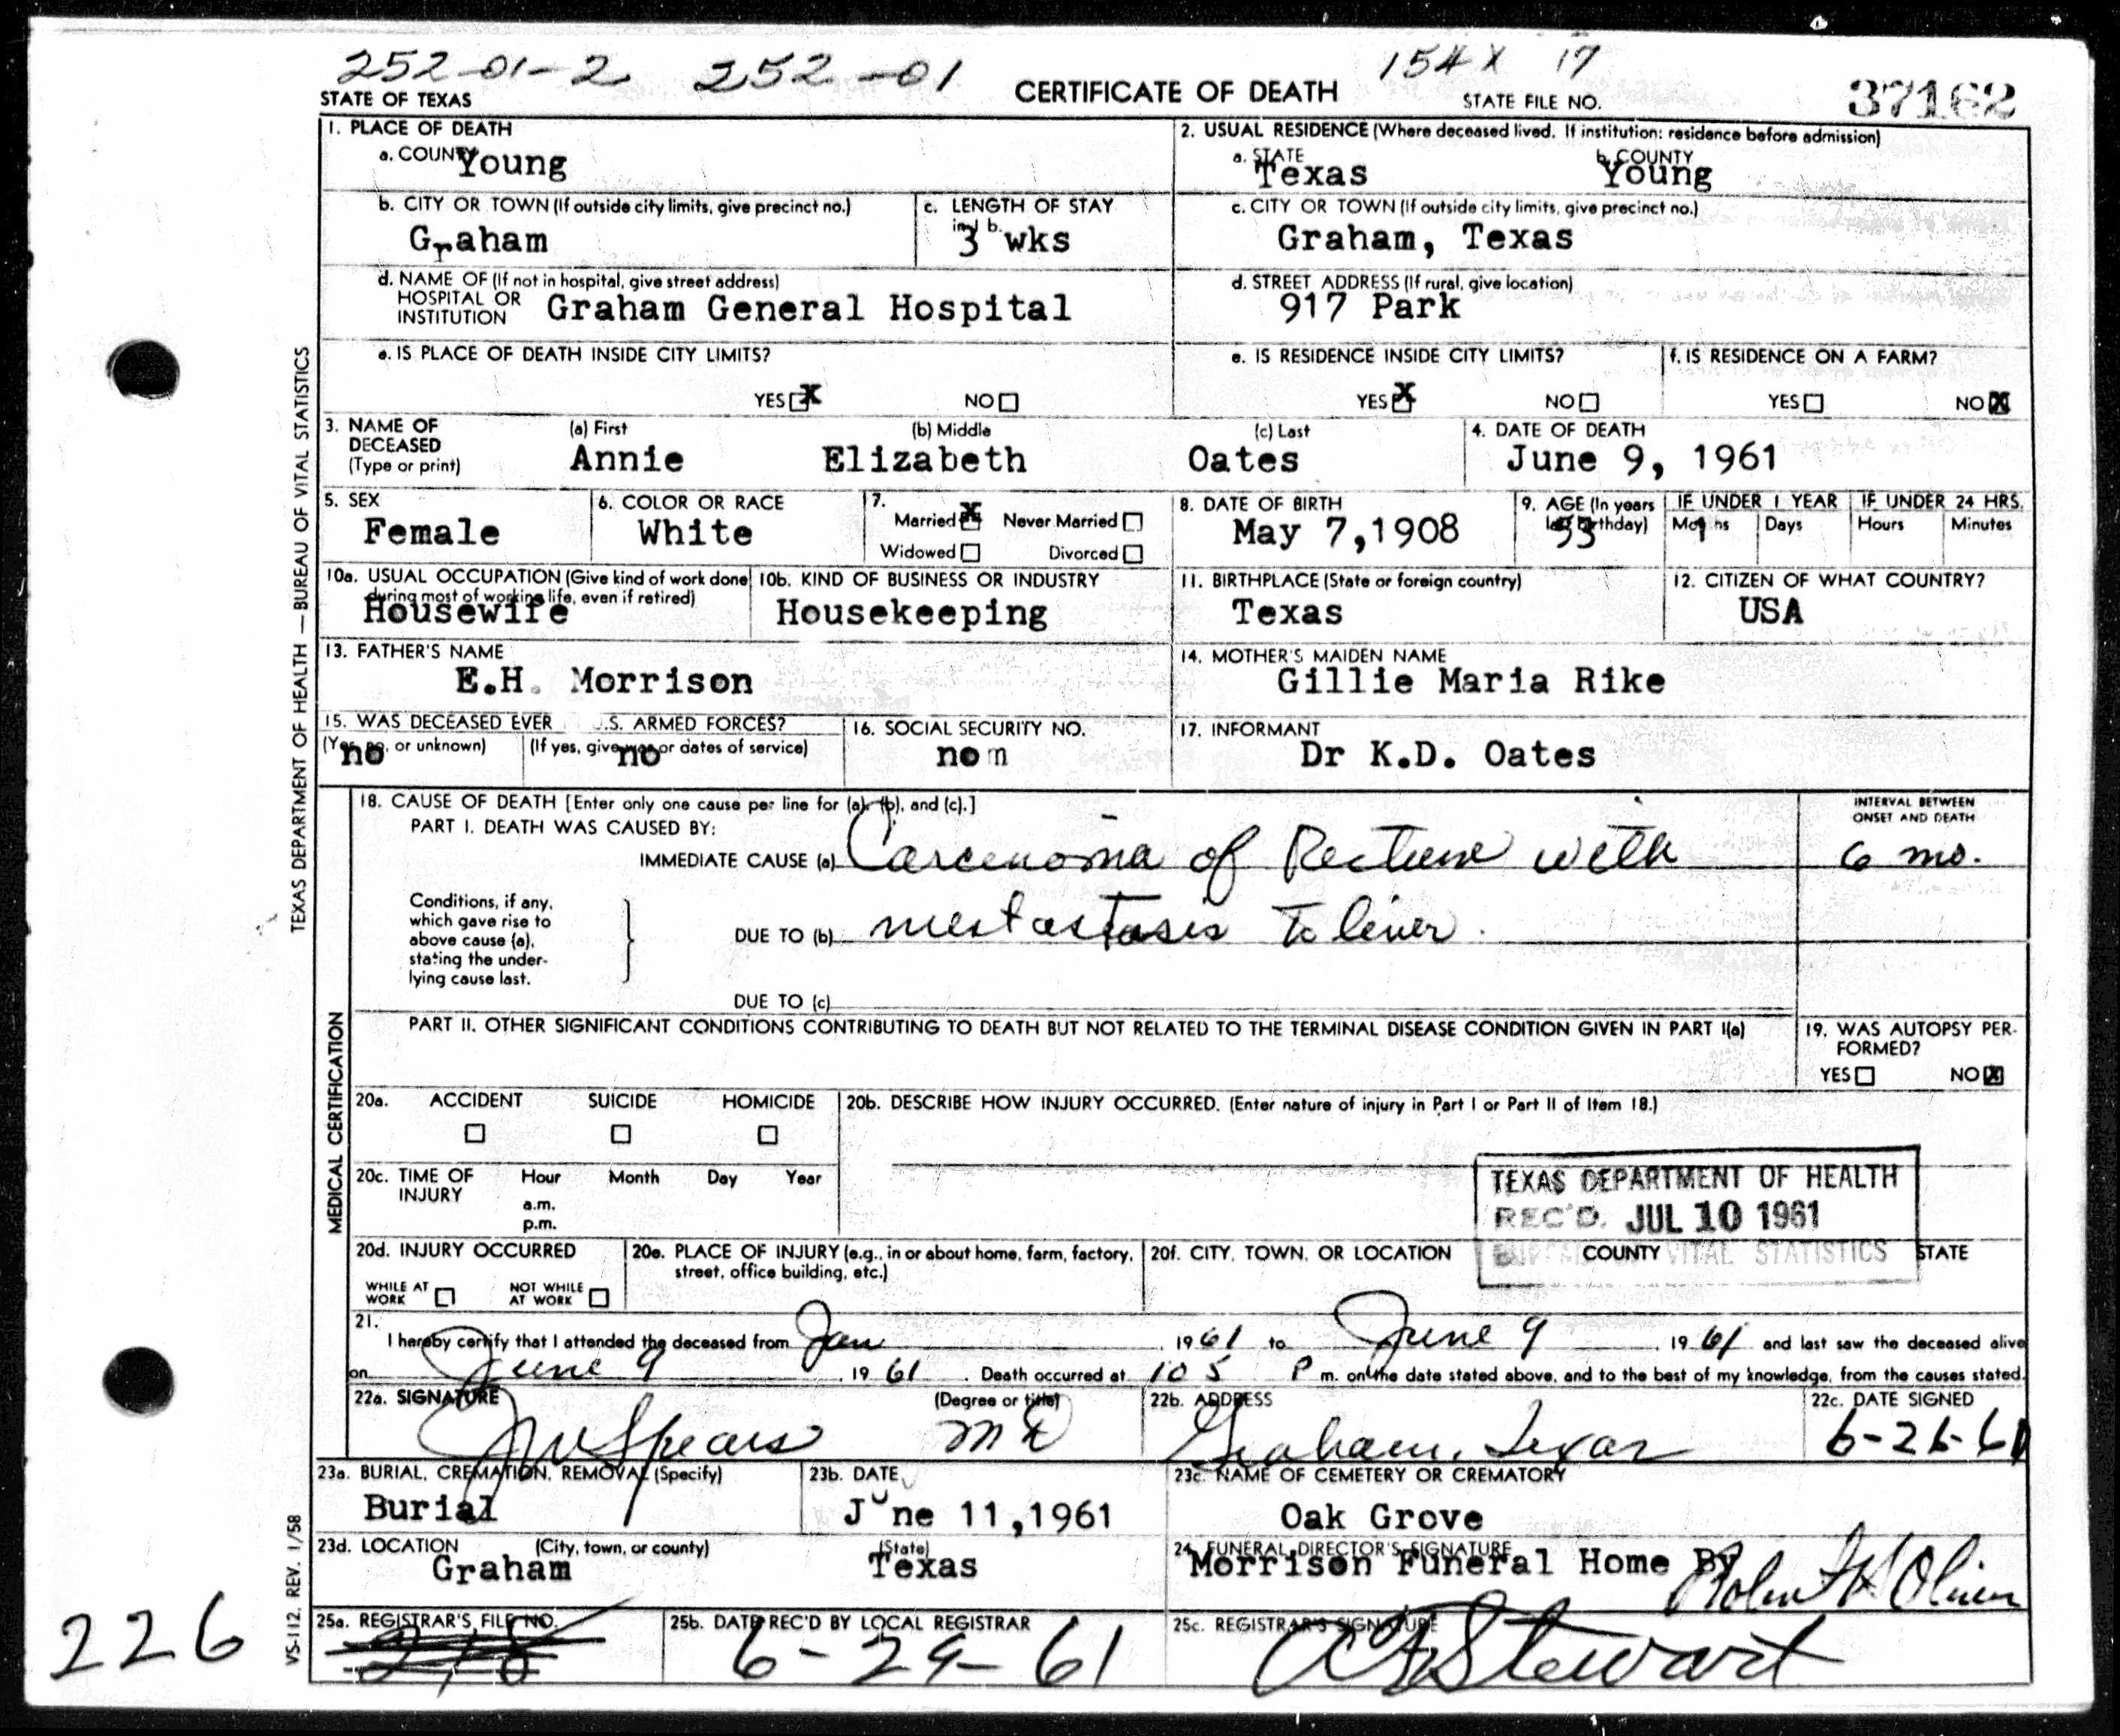 252-01-2 252-01 154X 17
STATE OF TEXAS CERTIFICATE OF DEATH STATE FILE NO. 37162
1. PLACE OF DEATH
a. COUNTY Young
2. USUAL RESIDENCE (Where deceased lived. If institution: residence before admission)
a. STATE Texas b. COUNTY Young
b. CITY OR TOWN (If outside city limits, give precinct no.) Graham
c. LENGTH OF STAY in 1 b. 3 wks
c. CITY OR TOWN (If outside city limits, give precinct no.) Graham, Texas
d. NAME OF (If not in hospital, give street address)
HOSPITAL OR
INSTITUTION Graham General Hospital
d. STREET ADDRESS (If rural, give location)
917 Park
e. IS PLACE OF DEATH INSIDE CITY LIMITS?
YES X NO
e. IS RESIDENCE INSIDE CITY LIMITS?
YES X NO
f. IS RESIDENCE ON A FARM?
YES NO X
3. NAME OF DECEASED (Type or print)
(a) First (b) Middle (c) Last
Annie Elizabeth Oates
4. DATE OF DEATH
June 9, 1961
5. SEX
Female
6. COLOR OR RACE
White
7.
Married X Never Married
Widowed Divorced
8. DATE OF BIRTH
May 7,1908
9. AGE (In years last birthday)
53
IF UNDER 1 YEAR IF UNDER 24 HRS.
Months 1 Days Hours Minutes
10a. USUAL OCCUPATION (Give kind of work done during most of working life, even if retired)
Housewife
10b. KIND OF BUSINESS OR INDUSTRY
Housekeeping
11. BIRTHPLACE (State or foreign country)
Texas
12. CITIZEN OF WHAT COUNTRY?
USA
13. FATHER'S NAME
E.H. Morrison
14. MOTHER'S MAIDEN NAME
Gillie Maria Rike
15. WAS DECEASED EVER U.S. ARMED FORCES?
(Yes, no, or unknown) (If yes, give war or dates of service)
no no
16. SOCIAL SECURITY NO.
nom
17. INFORMANT
Dr K.D. Oates
TEXAS DEPARTMENT OF HEALTH — BUREAU OF VITAL STATISTICS
MEDICAL CERTIFICATION
18. CAUSE OF DEATH [Enter only one cause per line for (a), (b), and (c).]
PART I. DEATH WAS CAUSED BY:
IMMEDIATE CAUSE (a) Carcenoma of Rectum with
INTERVAL BETWEEN
ONSET AND DEATH
6 mo.
Conditions, if any,
which gave rise to
above cause (a),
stating the under-
lying cause last.
DUE TO (b) mestastasis To liver.
DUE TO (c)
PART II. OTHER SIGNIFICANT CONDITIONS CONTRIBUTING TO DEATH BUT NOT RELATED TO THE TERMINAL DISEASE CONDITION GIVEN IN PART I(a)
19. WAS AUTOPSY PER-
FORMED?
YES NO X
20a. ACCIDENT SUICIDE HOMICIDE
20b. DESCRIBE HOW INJURY OCCURRED. (Enter nature of injury in Part I or Part II of Item 18.)
20c. TIME OF INJURY Hour Month Day Year
a.m.
p.m.
TEXAS DEPARTMENT OF HEALTH
REC'D. JUL 10 1961
VITAL STATISTICS
20d. INJURY OCCURRED
WHILE AT WORK NOT WHILE AT WORK
20e. PLACE OF INJURY (e.g., in or about home, farm, factory, street, office building, etc.)
20f. CITY, TOWN, OR LOCATION COUNTY STATE
21.
I hereby certify that I attended the deceased from Jan , 1961 to June 9 , 1961 and last saw the deceased alive
on June 9 , 1961 . Death occurred at 105 P m. on the date stated above, and to the best of my knowledge, from the causes stated.
22a. SIGNATURE (Degree or title)
Spears MD
22b. ADDRESS
Graham, Texas
22c. DATE SIGNED
6-26-61
23a. BURIAL, CREMATION, REMOVAL (Specify)
Burial
23b. DATE
June 11,1961
23c. NAME OF CEMETERY OR CREMATORY
Oak Grove
23d. LOCATION (City, town, or county) (State)
Graham Texas
24. FUNERAL DIRECTOR'S SIGNATURE
Morrison Funeral Home By
25a. REGISTRAR'S FILE NO.
218
25b. DATE REC'D BY LOCAL REGISTRAR
6-29-61
25c. REGISTRAR'S SIGNATURE
Stewart
VS-112 REV. 1/58
226